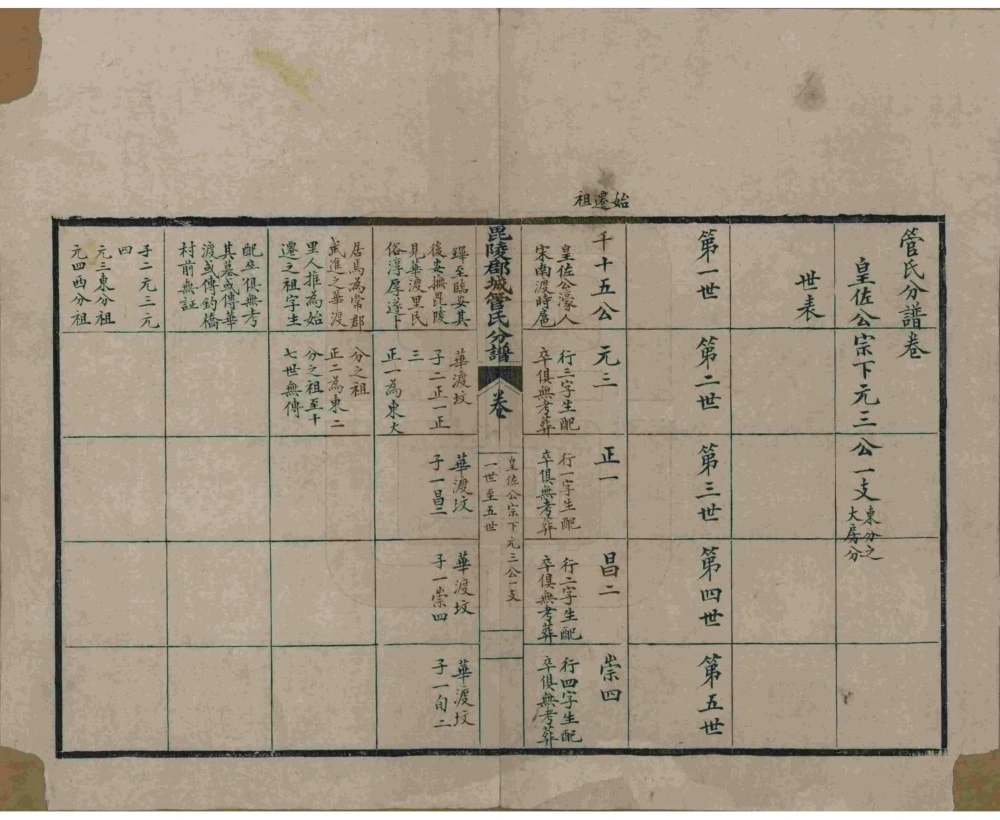 始遷祖
管氏分譜卷
皇佐公宗下元三公一支
東分之
大房分
世表
第一世
第二世
第三世
第四世
第五世
千十五公
皇佐公濠人
宋南渡時扈
蹕至臨安其
後安撫毘陵
見華渡里民
俗淳厚遂卜
居焉為常郡
武進之華渡
里人推為始
遷之祖字生
配卒俱無考
其墓或傳華
渡或傳釣橋
村前無証
子二元三元
四
元三東分祖
元四西分祖
元三
行三字生配
卒俱無考葬
華渡坟
子二正一正
三
正一為東大
分之祖
正二為東二
分之祖至十
七世無傳
正一
行一字生配
卒俱無考葬
華渡坟
子一昌二
昌二
行二字生配
卒俱無考葬
華渡坟
子一崇四
崇四
行四字生配
卒俱無考葬
華渡坟
子一旬二
毘陵郡城管氏分譜
卷
皇佐公宗下元三公一支
一世至五世